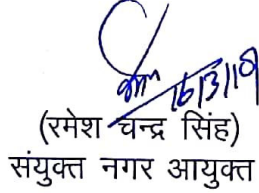 16/3/18
(रमेश चन्द्र सिंह)
संयुक्त नगर आयुक्त